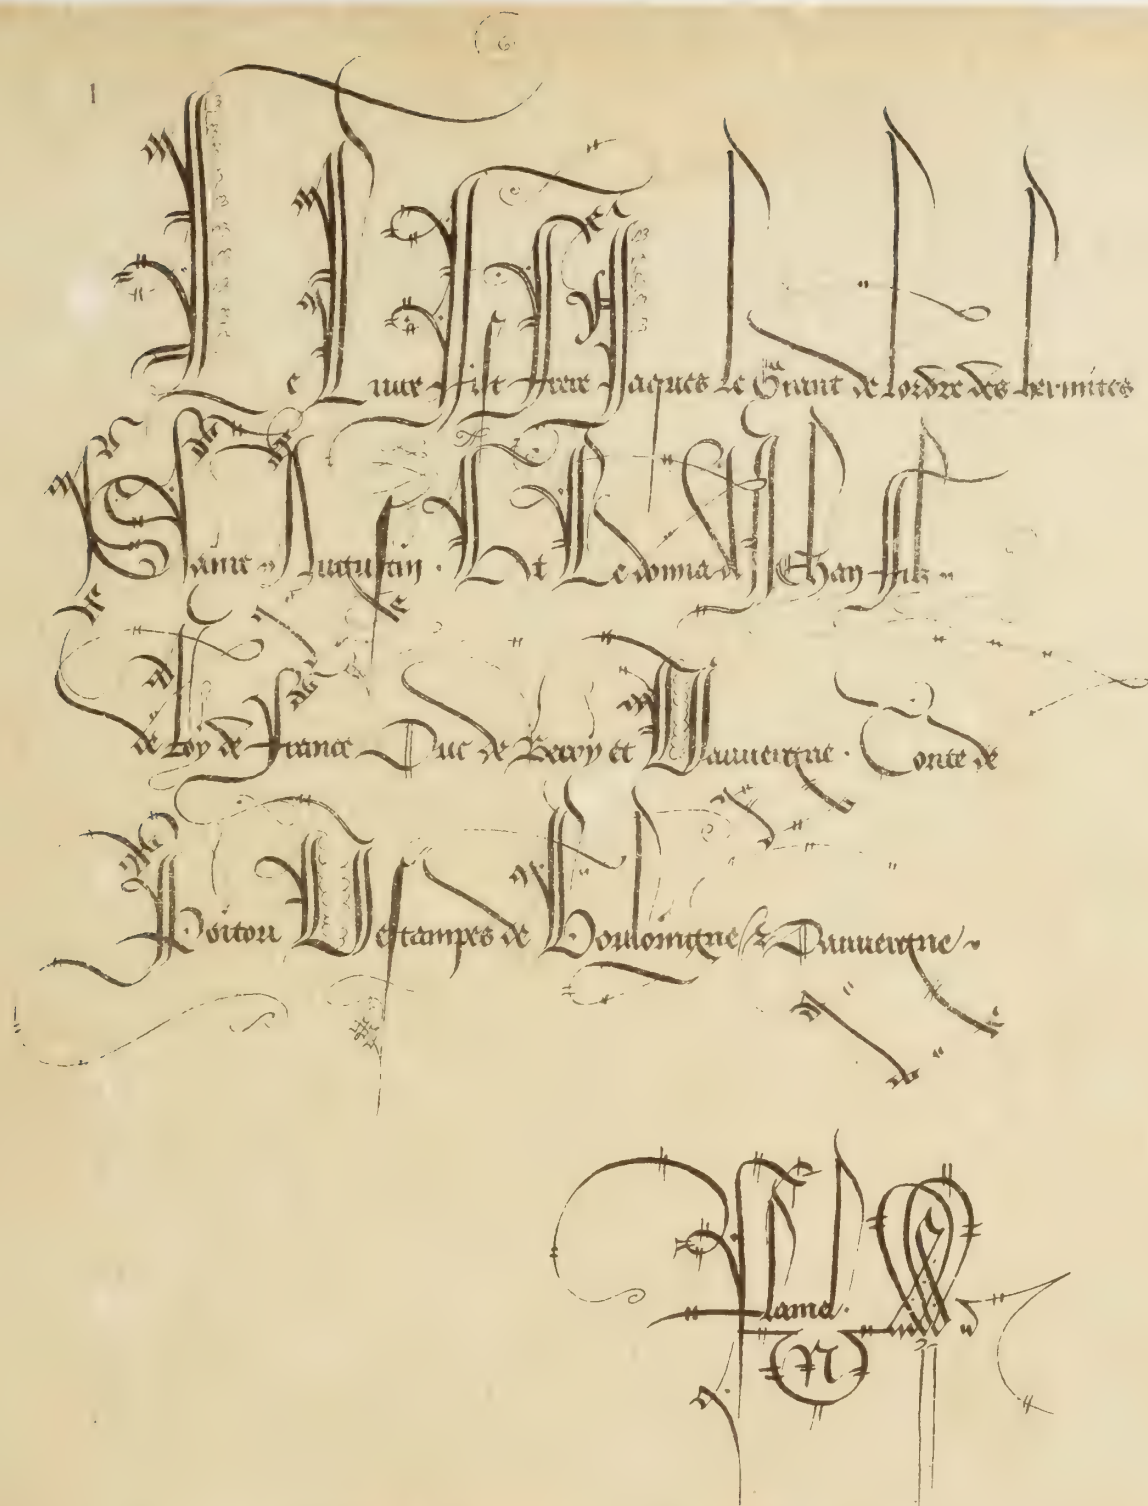 1
Ce Liure fist frere Jaques le Grant de lordre des hermites
Saint Augustin . Et Le donna a JEhan filz
de Roy de france Duc de Berry et Dauuergne . Conte de
Poitou Destampes de Bouloingne & Dauuergne
flamel .
N